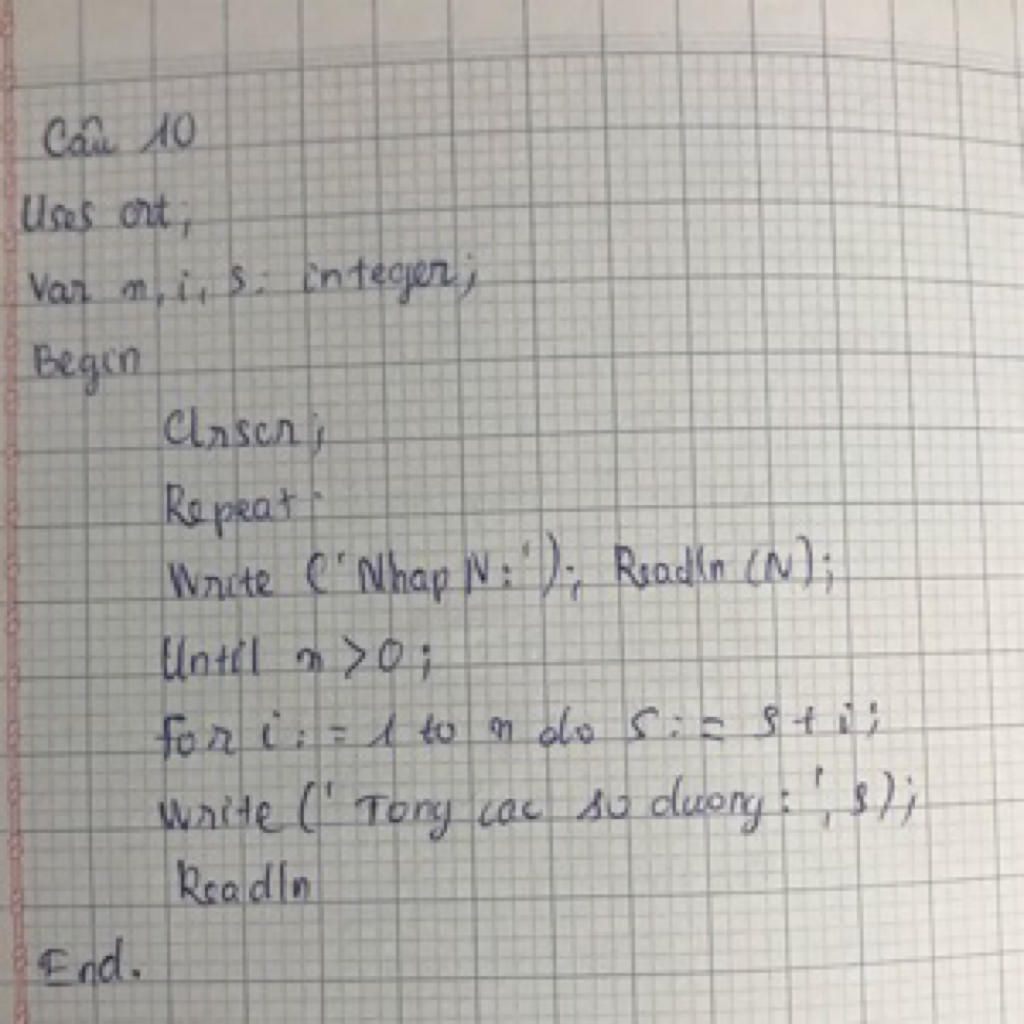 Câu 10
Uses crt;
Var n, i, s: integer;
Begin
Clrscr;
Repeat
Write ('Nhap N:'); Readln (N);
Until n > 0;
for i := 1 to n do S := s + i;
Write (' Tong cac so duong:', s);
Readln
End.